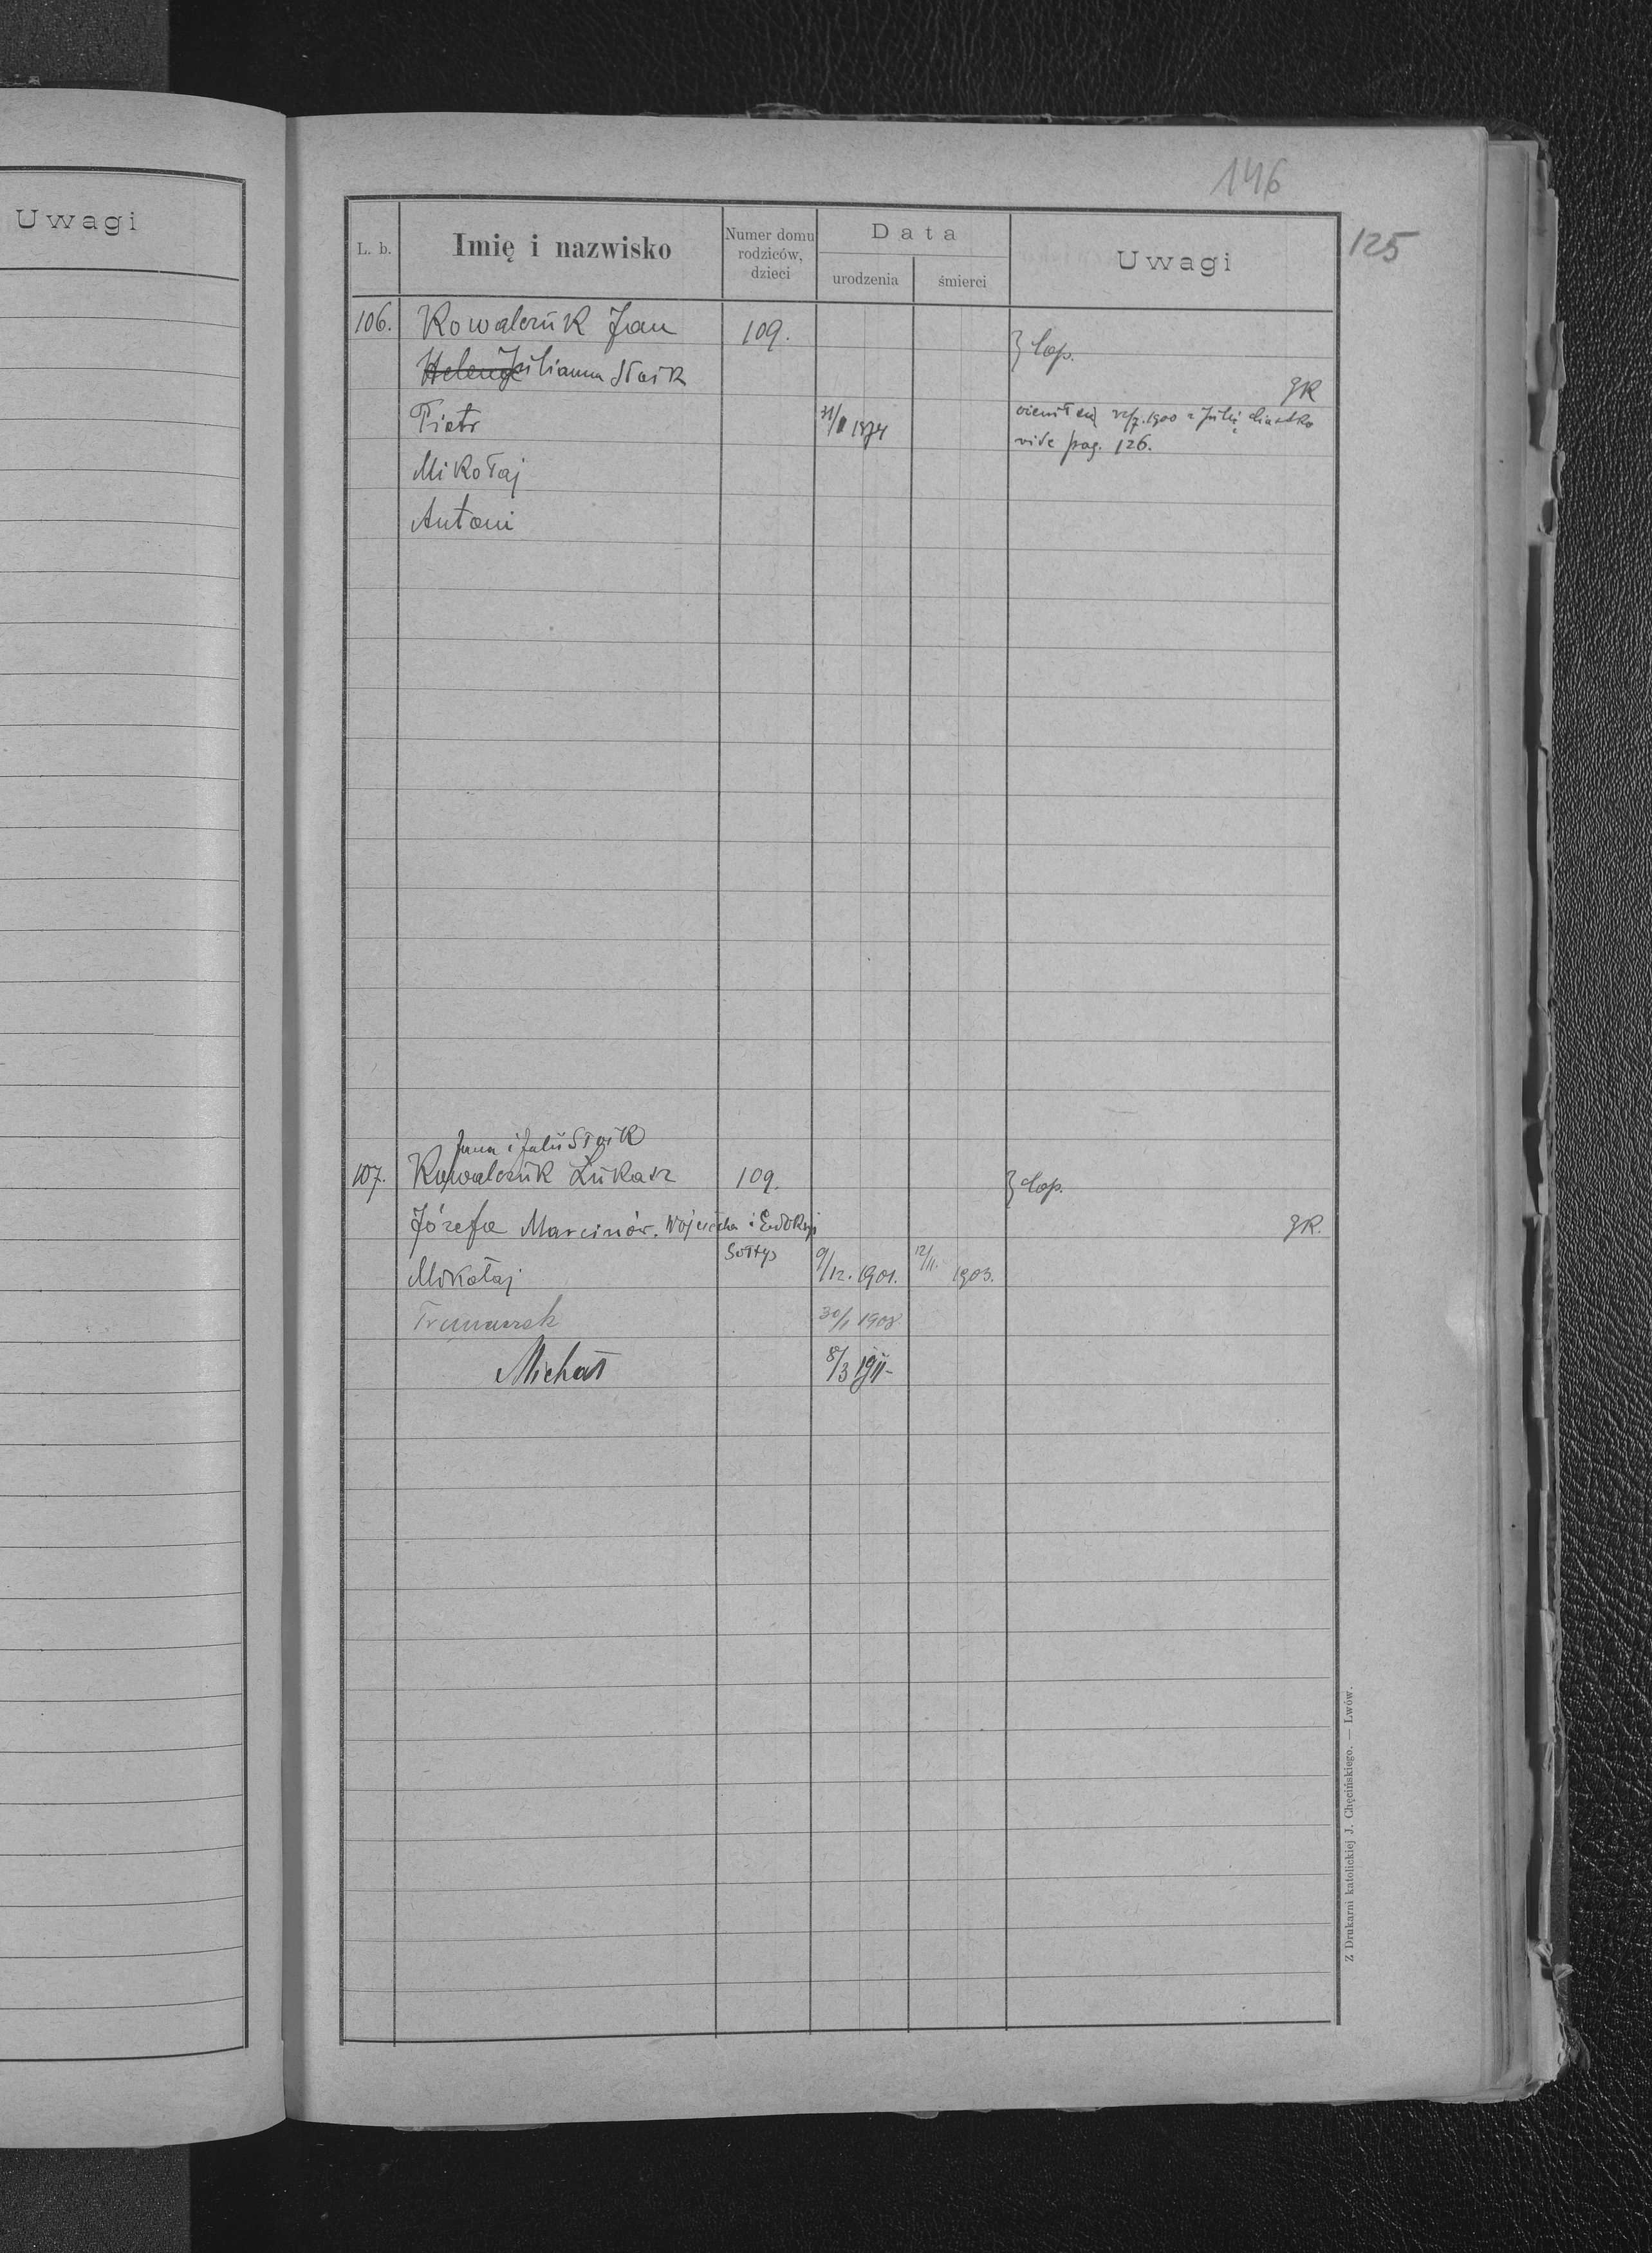 Uwagi
146
125
L. b.
Imię i nazwisko
Numer domu rodziców, dzieci
Data
urodzenia
śmierci
Uwagi
106. Kowalczuk Jan 109. } cop.
Helena Julianna Słaik gR
Piotr 1874 ożenił się 1900 z Julią
vide pag. 126.
Mikołaj
Antoni
Jana i Julii Słaik
107. Kowalczuk Łukasz 109. } cop.
Józefa Marcinów. Wojciecha i Eudokyi gR.
Sołtys
Mikołaj 9/12. 1901. 12/11. 1903.
Franciszek 30/1 1908
Michał 8/3 1911-
Z Drukarni katolickiej J. Chęcińskiego. — Lwów.